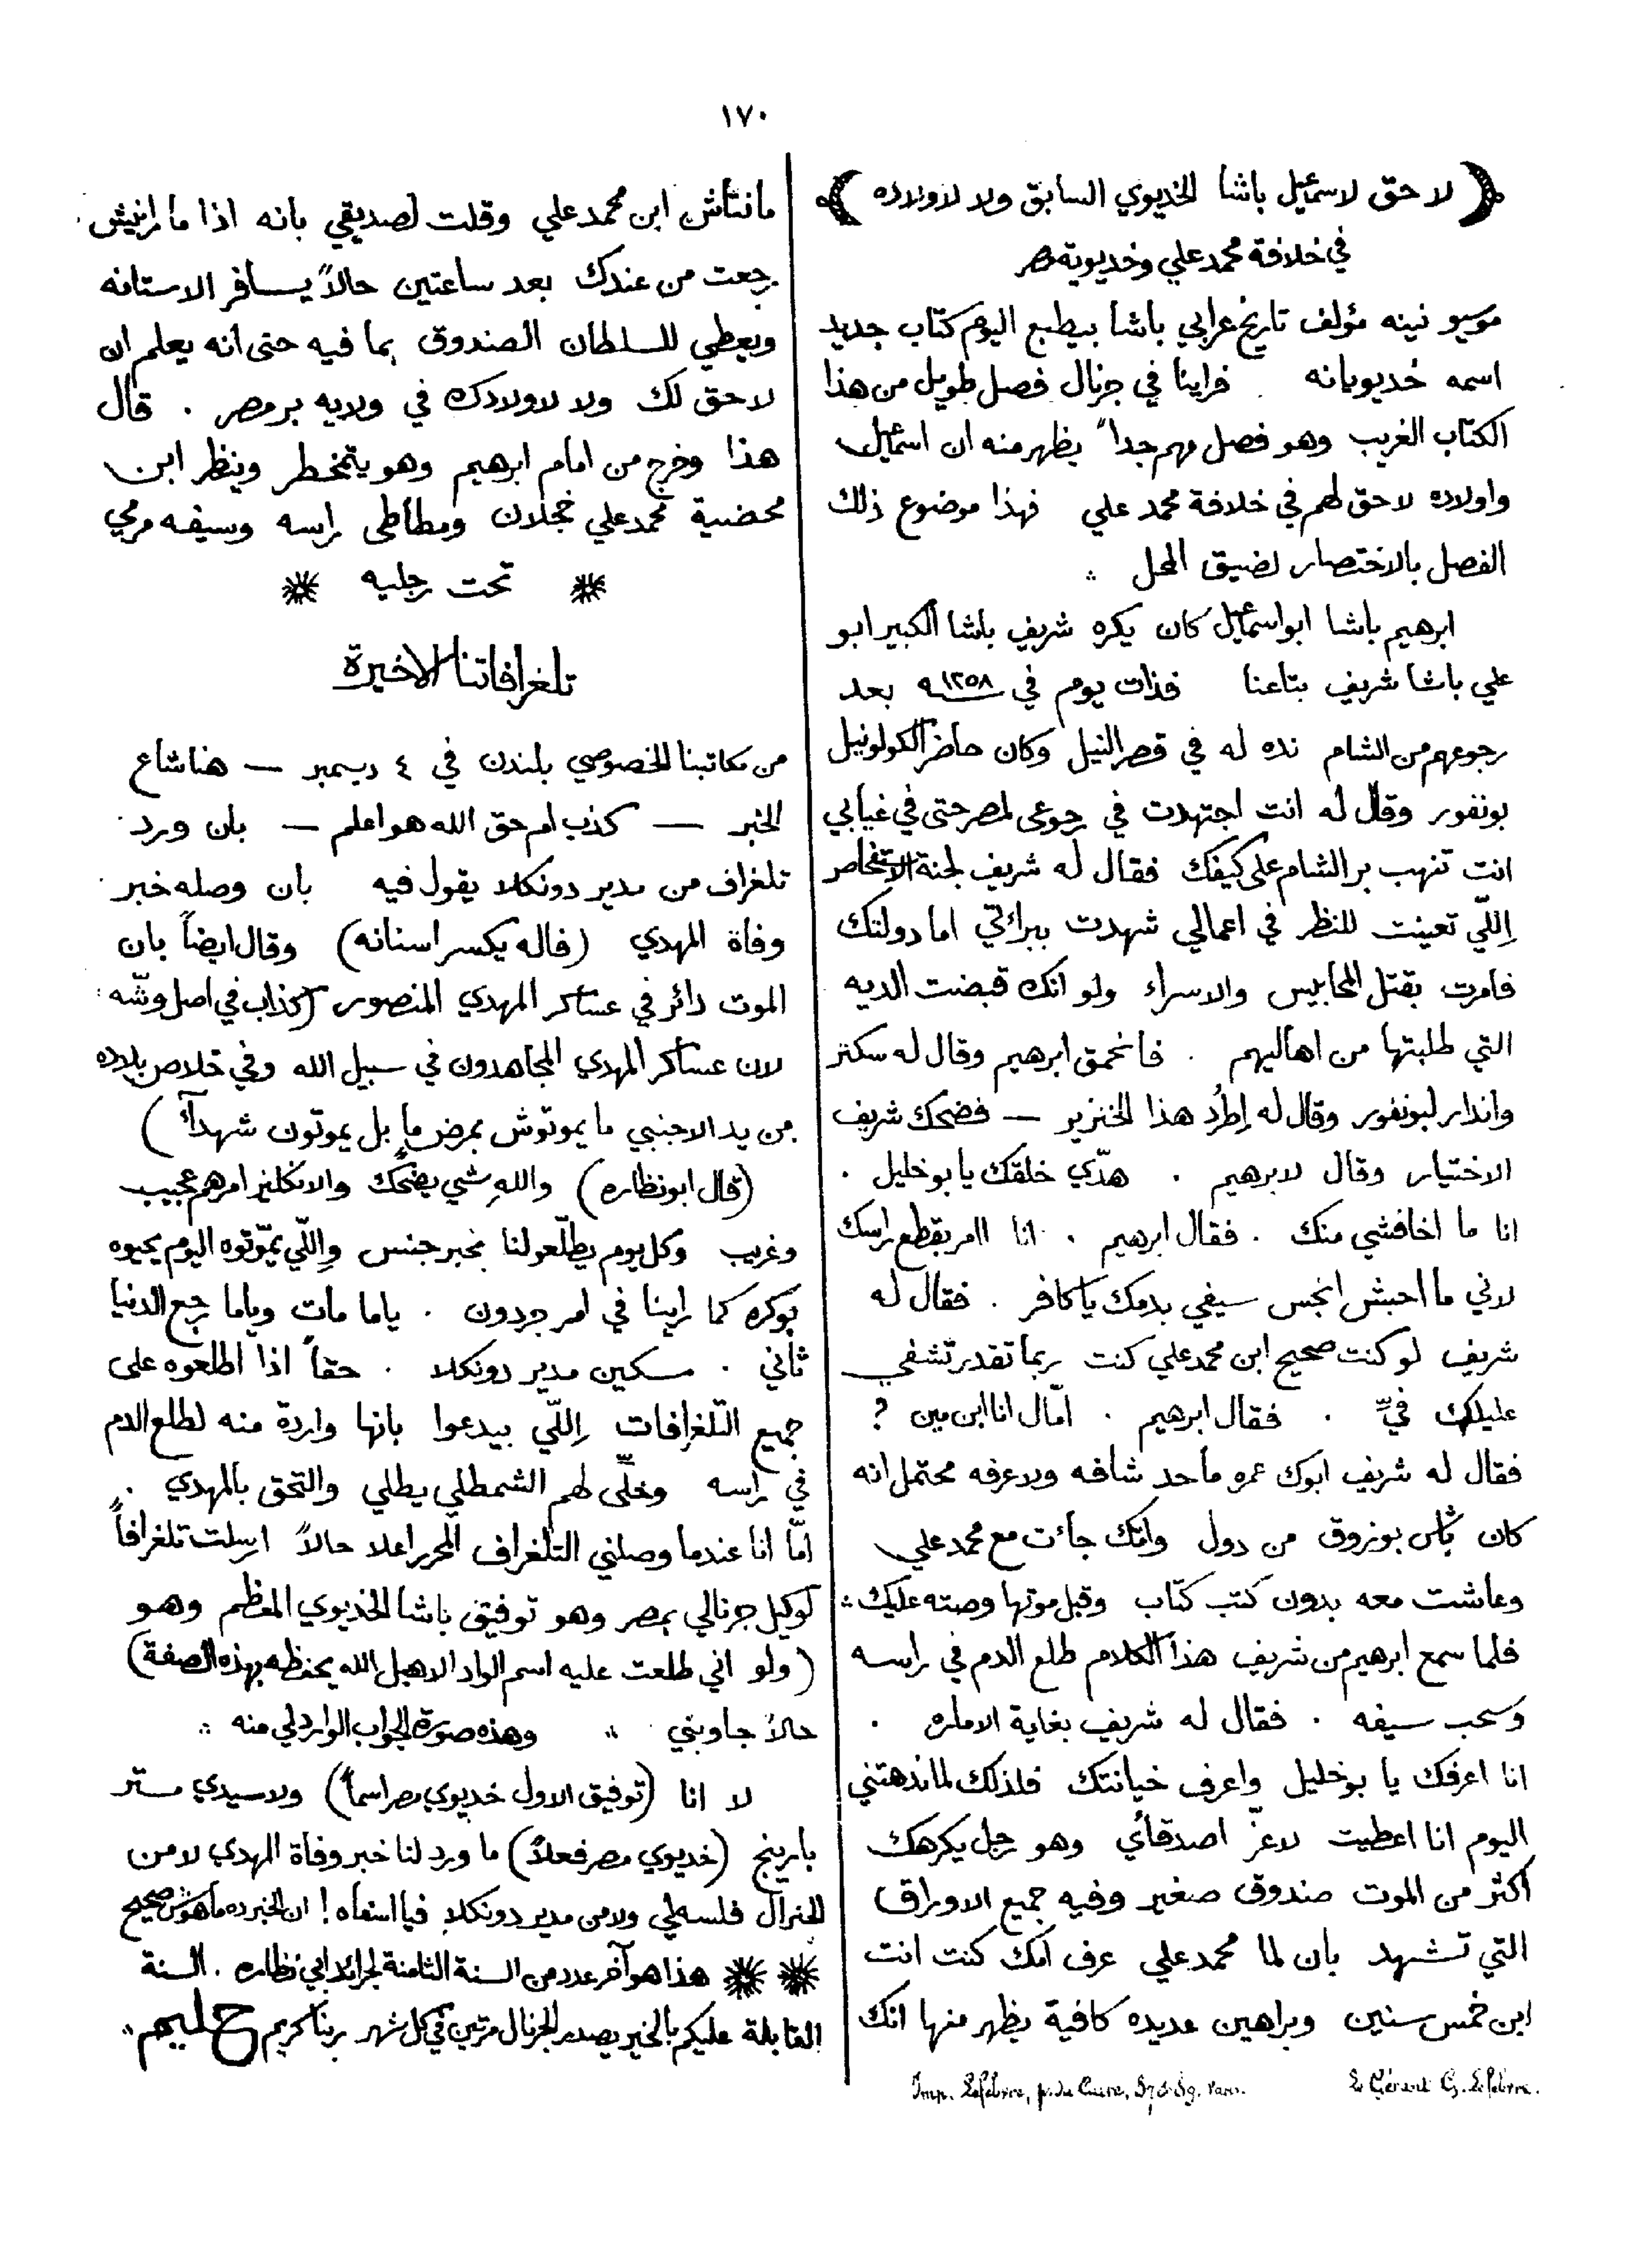 ١٧٠
لا حق لاسمعيل باشا الخديوي السابق ولا لاولاده
في خلافة محمد علي وخديوية مصر
موسيو نينه مؤلف تاريخ عرابي باشا بيطبع اليوم كتاب جديد
اسمه خُديويانه فراينا في جرنال فصل طويل من هذا
الكتاب الغريب وهو فصل مهم جداً يظهر منه ان اسمعيل
واولاده لا حق لهم في خلافة محمد علي فهذا موضوع ذلك
الفصل بالاختصار لضيق المحل ؞
ابرهيم باشا ابو اسمعيل كان يكره شريف باشا الكبير ابو
علي باشا شريف بتاعنا فذات يوم في ١٢٥٨ بعد
رجوعهم من الشام نده له في قصر النيل وكان حاضر الكولونيل
بونفور وقال له انت اجتهدت في رجوعى لمصر حتى في غيابي
انت تنهب بر الشام على كيفك فقال له شريف لجنة
اِللّي تعينت للنظر في اعمالي شهدت ببرائتي اما دولتك
فامرت بقتل المحابيس والاسراء ولو انك قبضت الديه
التي طلبتها من اهاليهم . فانحمق ابرهيم وقال له سكتر
واندار لبونفور وقال له اِطرُد هذا الخنزير — فضحك شريف
الاختيار وقال لابرهيم . هدّي خلقك يا بو خليل .
انا ما اخافشي منك . فقال ابرهيم . انا اامر بقطع راسك
لاني ما احبش انجس سيفي بدمك يا كافر . فقال له
شريف لو كنت صحيح ابن محمد علي كنت ربما تقدر تشفي
عليلك فيّ . فقال ابرهيم . امّال انا ابن مين ؟
فقال له شريف ابوك عمره ما حد شافه ولا عرفه محتمل انه
كان بونزوق من دول وامّك جائت مع محمد علي
وعاشت معه بدون كتب كتاب وقبل موتها وصته عليك ؞
فلما سمع ابرهيم من شريف هذا الكلام طلع الدم في راسه
وسحب سيفه . فقال له شريف بغاية الاماره .
انا اعرفك يا بو خليل واعرف خيانتك فلذلك لما ندهتني
اليوم انا اعطيت لاعزّ اصدقائي وهو رجل يكرهك
اكثر من الموت صندوق صغير وفيه جميع الاوراق
التي تشهد بان لما محمد علي عرف امّك كنت انت
ابن خمس سنين وبراهين عديده كافية يظهر منها انك
Imp. Lefebvre, p. du Caire, 87 & 89. Paris.
Le Gérant G. Lefebvre.
مانتاش ابن محمد علي وقلت لصديقي بانه اذا ما رانيش
رجعت من عندك بعد ساعتين حالاً يسافر الاستانه
ويعطي للسلطان الصندوق بما فيه حتى انه يعلم ان
لا حق لك ولا لاولادك في ولاية بر مصر . قال
هذا وخرج من امام ابرهيم وهو يتمخطر وينظر ابن
محضية محمد علي خجلان ومطاطى راسه وسيفه مرمي
تحت رجليه
تلغرافاتنا الاخيرة
من مكاتبنا الخصوصي بلندن في ٤ ديسمبر — هنا شاع
الخبر — كذب ام حق الله هو اعلم — بان ورد
تلغراف من مدير دونكلا يقول فيه بان وصله خبر
وفاة المهدي (فاله يكسر اسنانه) وقال ايضاً بان
الموت دائر في عساكر المهدي المنصور (كذاب في اصل وشّه
لان عساكر المهدي المجاهدون في سبيل الله وفي خلاص بلاده
من يد الاجنبي ما يموتوش بمرض ما بل يموتون شهدآء)
(قال ابو نظاره) واللهِ شي يضحّك والانكليز امرهم عجيب
وغريب وكل يوم يطلّعولنا بخبر جنس واِللّي يموّتوه اليوم يحيوه
بوكره كما راينا في امر جردون . ياما مات وياما رجع الدنيا
ثاني . مسكين مدير دونكلا . حقاً اذا اطلعوه على
جميع التلغرافات اِللّي بيدعوا بانها واردة منه لطلع الدم
في راسه وخلّى لهم الشمطلي يطلي والتحق بالمهدي .
امّا انا عندما وصلني التلغراف المحرر اعلا حالاً ارسلت تلغرافاً
لوكيل جرنالي بمصر وهو توفيق باشا الخديوي المعظم وهو
(ولو اني طلعت عليه اسم الواد الاهبل الله يحفظه بهذه الصفة)
حالاً جاوبني ؞ وهذه صورة الجواب الوارد لي منه ؞
لا انا (توفيق الاول خديوي مصر اسماً) ولا سيدي مستر
بارينج (خديوي مصر فعلاً) ما ورد لنا خبر وفاة المهدي لا من
الجنرال فلسلي ولا من مدير دونكلا فيا اسفاه! ان الخبر ده ما هوش صحيح
هذا هو آخر عدد من السنة الثامنة لجرائد ابي نظاره . السنة
القابلة عليكم بالخير يصدر الجرنال مرتين في كل شهر ربنا كريم حليم